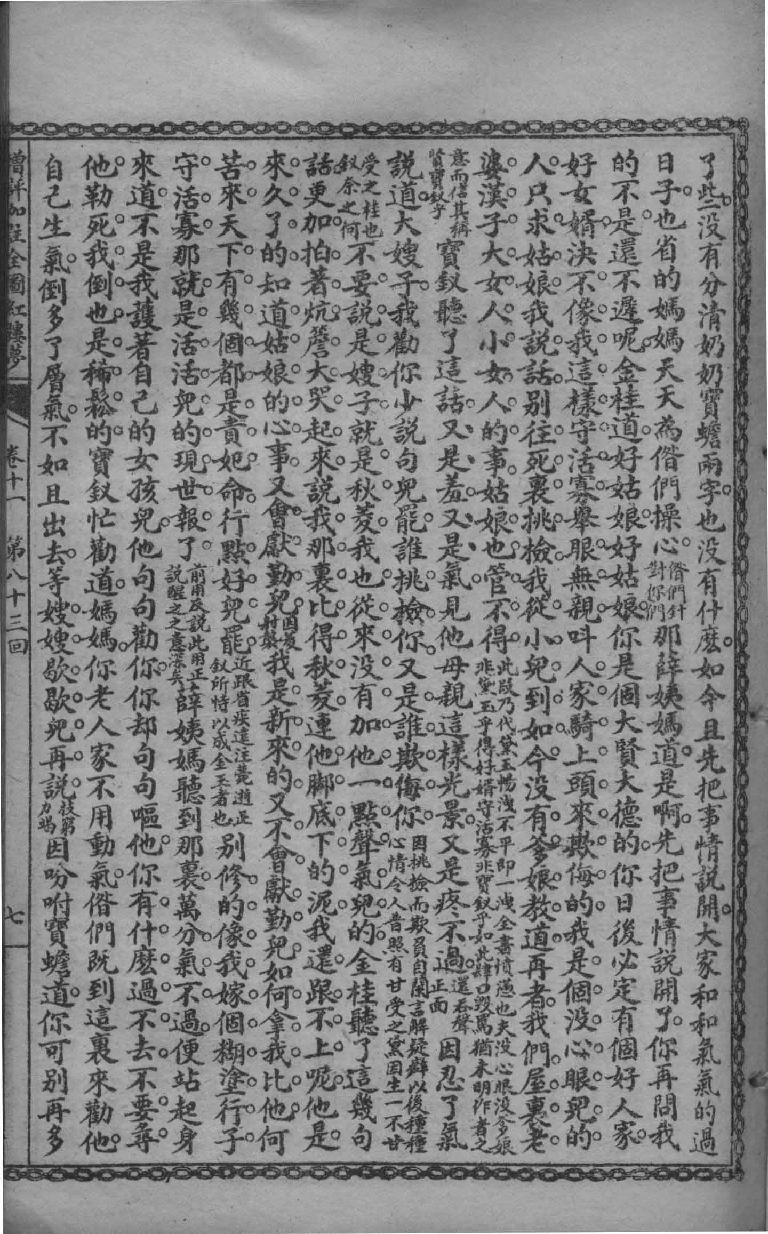 了些沒有分清奶奶寶蟾兩字也沒有什麽如今且先把事情說開大家和和氣氣的過
日子也省的媽媽天天為偺們操心偺們針對你們那薛姨媽道是啊先把事情說開了你再問我
的不是還不遲呢金桂道好姑娘好姑娘你是個大賢大德的你日後必定有個好人家
好女婿決不像我這樣守活寡舉眼無親叫人家騎上頭來欺侮的我是個沒心眼兒的
人只求姑娘我說話別往死裏挑撿我從小兒到如今沒有爹娘教道再者我們屋裏老
婆漢子大女人小女人的事姑娘也管不得此段乃代黛玉暢洩不平即一洩全書憤懣也夫沒心眼沒爹娘非黛玉乎得好婿守活寡非寶釵乎如此肆口毀罵猶未明作者之
意而借其稱賢寶釵乎寶釵聽了這話又是羞又是氣見他母親這樣光景又是疼不過還吞聲正面因忍了氣
說道大嫂子我勸你少說句兒罷誰挑撿你又是誰欺侮你因挑撿而欺員自蘭言解疑癖以後種種心情令人昔照有甘受之黛因生一不甘
受之桂也釵奈之何不要說是嫂子就是秋菱我也從來沒有加他一點聲氣兒的金桂聽了這幾句
話更加拍着炕簷大哭起來說我那裏比得秋菱連他脚底下的泥我還跟不上呢他是
來久了的知道姑娘的心事又會獻勤兒因菱射襲我是新來的又不會獻勤兒如何拿我比他何
苦來天下有幾個都是貴妃命行點好兒罷近跟省疾遠注薨逝正釵所恃以成金玉者也別修的像我嫁個糊塗行子
守活寡那就是活活兒的現世報了前用反說此用正說醒之之意深矣薛姨媽聽到那裏萬分氣不過便站起身
來道不是我護着自己的女孩兒他句句勸你你却句句嘔他你有什麽過不去不要尋
他勒死我倒也是稀鬆的寶釵忙勸道媽媽你老人家不用動氣偺們既到這裏來勸他
自己生氣倒多了層氣不如且出去等嫂嫂歇歇兒再說技窮力竭因吩咐寶蟾道你可別再多
增評加註全圖紅樓夢 卷十一 第八十三回 七